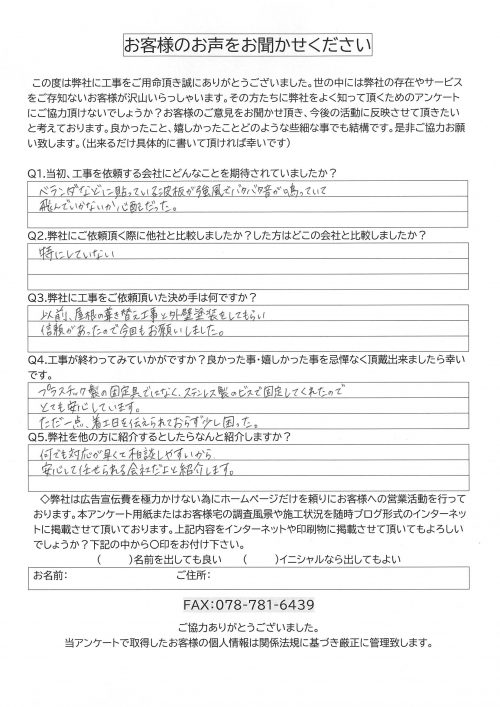 お客様のお声をお聞かせください
この度は弊社に工事をご用命頂き誠にありがとうございました。世の中には弊社の存在やサービス
をご存知ないお客様が沢山いらっしゃいます。その方たちに弊社をよく知って頂くためのアンケート
にご協力頂けないでしょうか？お客様のご意見をお聞かせ頂き、今後の活動に反映させて頂きたい
と考えております。良かったこと、嬉しかったことどのような些細な事でも結構です。是非ご協力お願
い致します。（出来るだけ具体的に書いて頂ければ幸いです）
Q1.当初、工事を依頼する会社にどんなことを期待されていましたか？
ベランダなどに貼っている波板が強風でバタバタ音が鳴っていて
飛んでいかないか心配だった。
Q2.弊社にご依頼頂く際に他社と比較しましたか？した方はどこの会社と比較しましたか？
特にしていない
Q3.弊社に工事をご依頼頂いた決め手は何ですか？
以前、屋根の葺き替え工事と外壁塗装をしてもらい
信頼があったので今回もお願いしました。
Q4.工事が終わってみていかがですか？良かった事・嬉しかった事を忌憚なく頂戴出来ましたら幸い
です。
プラスチック製の固定具ではなく、ステンレス製のビスで固定してくれたので
とても安心しています。
ただ一点、着工日を伝えられておらず少し困った。
Q5.弊社を他の方に紹介するとしたらなんと紹介しますか？
何でも対応が早くて相談しやすいから
安心して任せられる会社だと紹介します。
◇弊社は広告宣伝費を極力かけない為にホームページだけを頼りにお客様への営業活動を行って
おります。本アンケート用紙またはお客様宅の調査風景や施工状況を随時ブログ形式のインターネッ
トに掲載させて頂いております。上記内容をインターネットや印刷物に掲載させて頂いてもよろしい
でしょうか？下記の中から〇印をお付け下さい。
（　　）名前を出しても良い　（　　）イニシャルなら出してもよい
お名前：　ご住所：
FAX：078-781-6439
ご協力ありがとうございました。
当アンケートで取得したお客様の個人情報は関係法規に基づき厳正に管理致します。